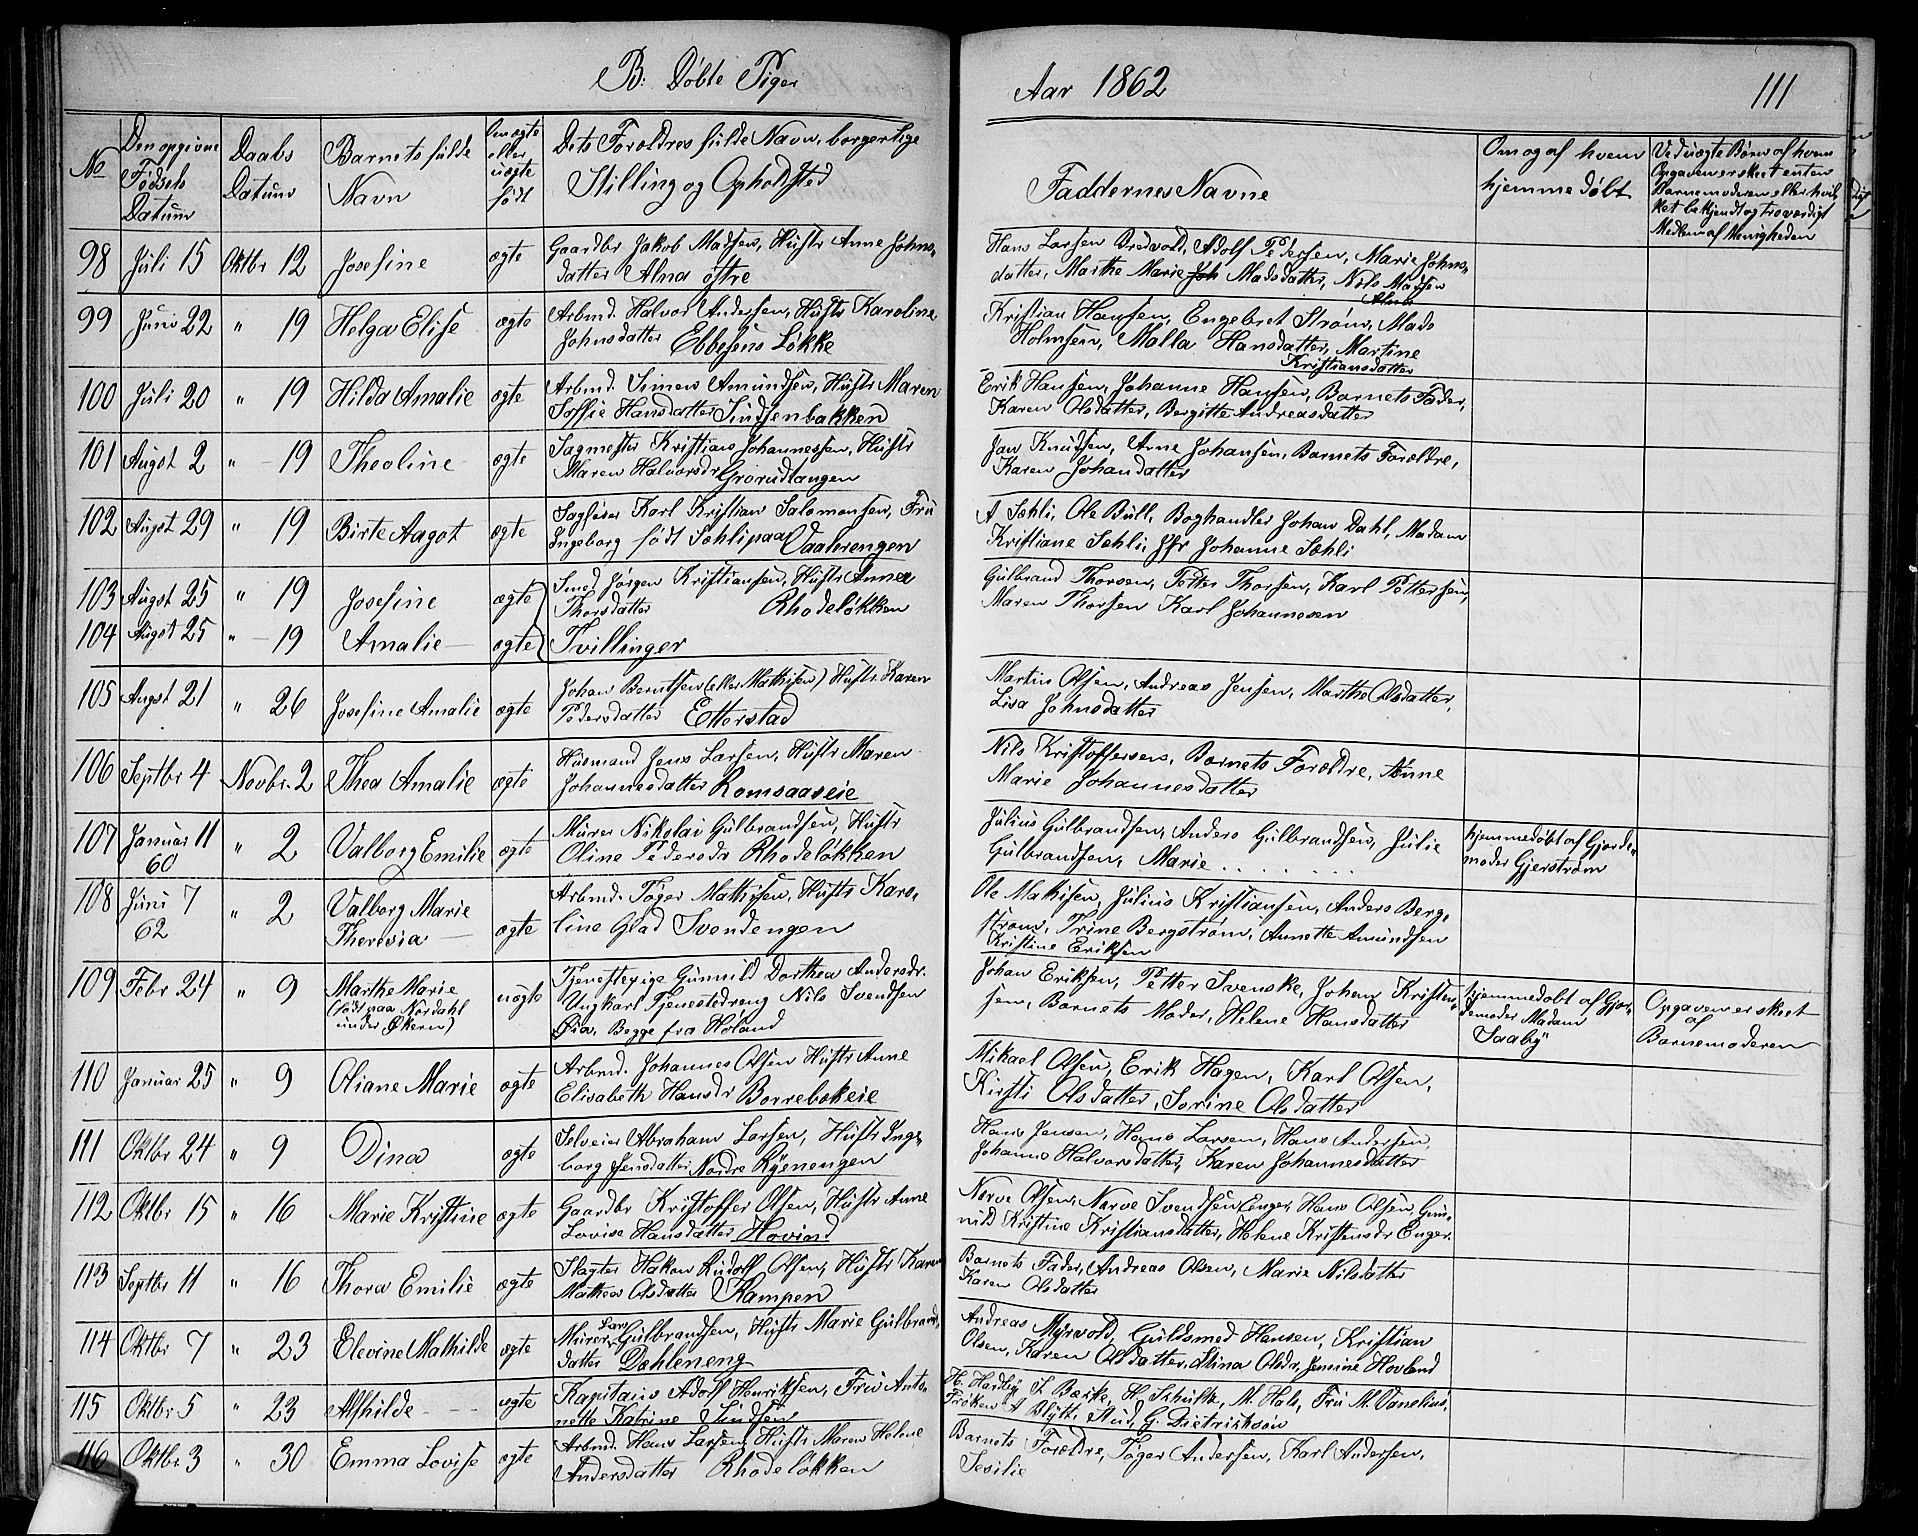 B. Døbte Piger
Aar 1862
111
No
Den opgivne Fødsels Datum
Daabs Datum
Barnets fulde Navn
Om ægte eller uægte født
Dets Forældres fulde Navn, borgerlige Stilling og Opholdsted
Faddernes Navne
Om og af hvem hjemmedøbt
Ved uægte Børn af hvem Opgaven er skeet enten Barnemoderen eller hvilket bekjendt og troværdigt Medlem af Menigheden
98 Juli 15 Oktbr 12 Josefine ægte Gaardbr Jakob Madsen, Hustr Anne Johns-
datter Alna østre
Hans Larsen Bredvold, Adolf Pedersen, Marie Johns-
datter, Marthe Marie Joh Madsdatter, Nils Madsen
Alna
99 Juni 22 " 19 Helga Elise ægte Arbmd. Halvor Andersen, Hustr Karoline
Johnsdatter Ebbesens Løkke
Kristian Hansen, Engebret Strøm, Mads
Holmsen, Malla Hansdatter, Martine
Kristiansdatter
100 Juli 20 " 19 Hilda Amalie ægte Arbmd. Simen Amundsen, Hustr Maren
Soffie Hansdatter Sindsenbakken
Erik Hansen, Johanne Hansen, Barnets Fader,
Karen Olsdatter, Bergitte Andreasdatter
101 Augst 2 " 19 Theoline ægte Sagmestr Kristian Johannessen, Hustr
Maren Halvorsdr Grorudtangen
Jan Knudsen, Anne Johansen, Barnets Forældre,
Karen Johandatter
102 Augst 29 " 19 Birte Aagot ægte Sagfører Karl Kristian Salomonsen, Fru
Ingeborg født Sehli paa Vaalerengen
A Sehli, Ole Bull, Boghandler Johan Dahl, Madam
Kristiane Sehli, Jfr Johanne Sehli
103 Augst 25 " 19 Josefine ægte Smed Jørgen Kristiansen, Hustr Anna
Thorsdatter Rhodeløkken
Gulbrand Thorsen, Petter Thorsen, Karl Pettersen,
Maren Thorsen Karl Johannesen
104 Augst 25 " 19 Amalie ægte Tvillinger
105 Augst 21 " 26 Josefine Amalie ægte Johan Berntsen (eller Mathisen) Hustr Karen
Pedersdatter Etterstad
Martin Olsen, Andreas Jensen, Marthe Olsdatter,
Lisa Johnsdatter
106 Septbr 4 Novbr. 2 Thea Amalie ægte Husmand Jens Larsen, Hustr Maren
Johannesdatter Romsaaseie
Nils Kristoffersen, Barnets Forældre, Anne
Marie Johannesdatter
107 Januar 11
60 " 2 Valborg Emilie ægte Murer Nikolai Gulbrandsen, Hustr
Oline Pedersdr Rhodeløkken
Julius Gulbrandsen, Anders Gulbrandsen, Julie
Gulbrandsen, Marie . . . . . . .
hjemmedøbt af Gjorde-
moder Gjerstrøm
108 Juni 7
62 " 2 Valborg Marie
Theresia ægte Arbmd. Tøger Mathisen, Hustr Karo-
line Glad Svendengen
Ole Mathisen, Julius Kristiansen, Anders Berg-
strøm, Trine Bergstrøm, Annette Amundsen
Kristine Eriksen
109 Febr 24 " 9 Marthe Marie
(født paa Nordahl
under Økern) uægte Tjenestepige Gunnild Dorthea Andersdr.
Ungkarl Tjenestedreng Nils Svendsen
Øia, Begge fra Høland
Johan Eriksen, Petter Svenske, Johan Kristen-
sen, Barnets Moder, Helene Hansdatter
hjemmedøbt af Gjor-
demoder Madam
Saaby
Opgaven er skeet
af
Barnemoderen
110 Januar 25 " 9 Oliane Marie ægte Arbmd. Johannes Olsen Hustr Anne
Elisabeth Hansdr Borrebækeie
Mikael Olsen, Erik Hagen, Karl Olsen,
Kirsti Olsdatter, Serine Olsdatter
111 Oktbr 24 " 9 Dina ægte Selveier Abraham Larsen, Hustr Inge-
borg Jensdatter Nordre Ryenengen
Hans Jensen, Hans Larsen, Hans Andersen
Johanne Halvorsdatter, Karen Johannesdatter
112 Oktbr 15 " 16 Marie Kristine ægte Gaardbr Kristoffer Olsen, Hustr Anne
Lovise Hansdatter Hovind
Narve Olsen, Narve Svendsen Enger, Hans Olsen, Gun-
nild Kristine Kristiansdatter, Helene Kristensdr Enger.
113 Septbr 11 " 16 Thora Emilie ægte Slagter Hakon Rudolf Olsen, Hustr Karen
Mathea Olsdatter Kampen
Barnets Fader, Andreas Olsen, Marie Nilsdatter
Karen Olsdatter
114 Oktbr 7 " 23 Elevine Mathilde ægte Murer Lars Gulbrandsen, Hustr Marie Gulbrand-
datter Dæhleneng
Andreas Myrvold, Guldsmed Hansen, Kristian
Olsen, Karen Olsdatter, Stina Olsdr, Jensine Hovland
115 Oktbr 5 " 23 Alfhilde uægte Kapitain Adolf Henriksen, Frü Anto-
nette Katrine Sindsen
H. Hardby, Bærke, H. Schulta, M. Hals, Fru M. Vanelius,
Frøken A Blytt, Aud, G. Dietrikson
116 Oktbr 3 " 30 Emma Lovise ægte Arbmd. Hans Larsen, Hustr Maren Helene
Andersdatter Rhodeløkken
Barnets Forældre, Tøger Andersen, Karl Andersen,
Sesilie